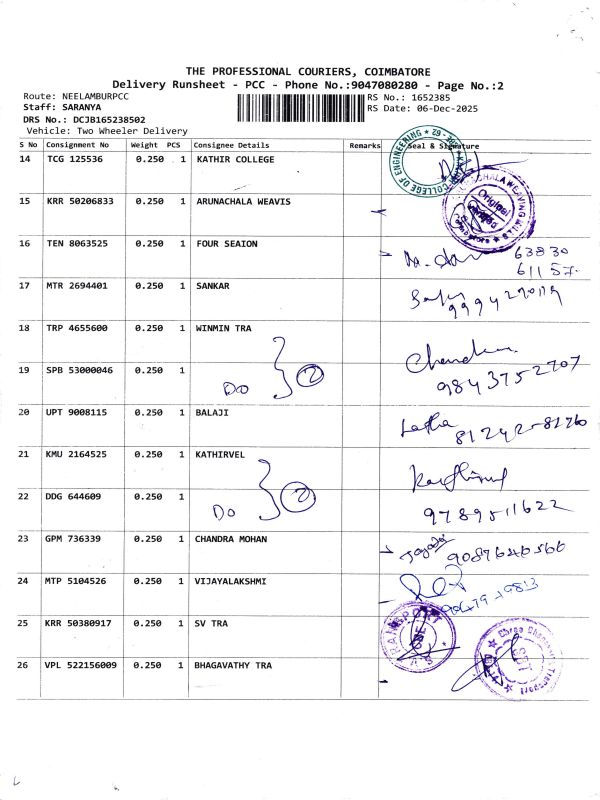 THE PROFESSIONAL COURIERS, COIMBATORE
Delivery Runsheet - PCC - Phone No.:9047080280 - Page No.:2
Route: NEELAMBURPCC
Staff: SARANYA
DRS No.: DCJB165238502
Vehicle: Two Wheeler Delivery
RS No.: 1652385
RS Date: 06-Dec-2025
S No Consignment No Weight PCS Consignee Details Remarks Seal & Signature
14 TCG 125536 0.250 1 KATHIR COLLEGE
COLLEGE OF ENGINEERING
15 KRR 50206833 0.250 1 ARUNACHALA WEAVIS
Original
16 TEN 8063525 0.250 1 FOUR SEAION
63830
61157
17 MTR 2694401 0.250 1 SANKAR
18 TRP 4655600 0.250 1 WINMIN TRA
19 SPB 53000046 0.250 1
Do 2
9843752707
20 UPT 9008115 0.250 1 BALAJI
Latha
81242-81260
21 KMU 2164525 0.250 1 KATHIRVEL
22 DDG 644609 0.250 1
Do 2
9789511622
23 GPM 736339 0.250 1 CHANDRA MOHAN
9087646566
24 MTP 5104526 0.250 1 VIJAYALAKSHMI
25 KRR 50380917 0.250 1 SV TRA
S.V. TRANSPORT
CBE
26 VPL 522156009 0.250 1 BHAGAVATHY TRA
SBT
Transport